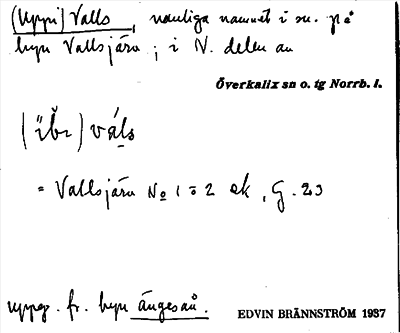 (Uppi) Valls, vanliga namnet i sn. på
byn Vallsjärv; i N. delen av
Överkalix sn o. tg Norrb. l.
váls
= Vallsjärv No 1 o 2 ek, G. 23
uppg. fr. byn ängesån.
EDVIN BRÄNNSTRÖM 1937